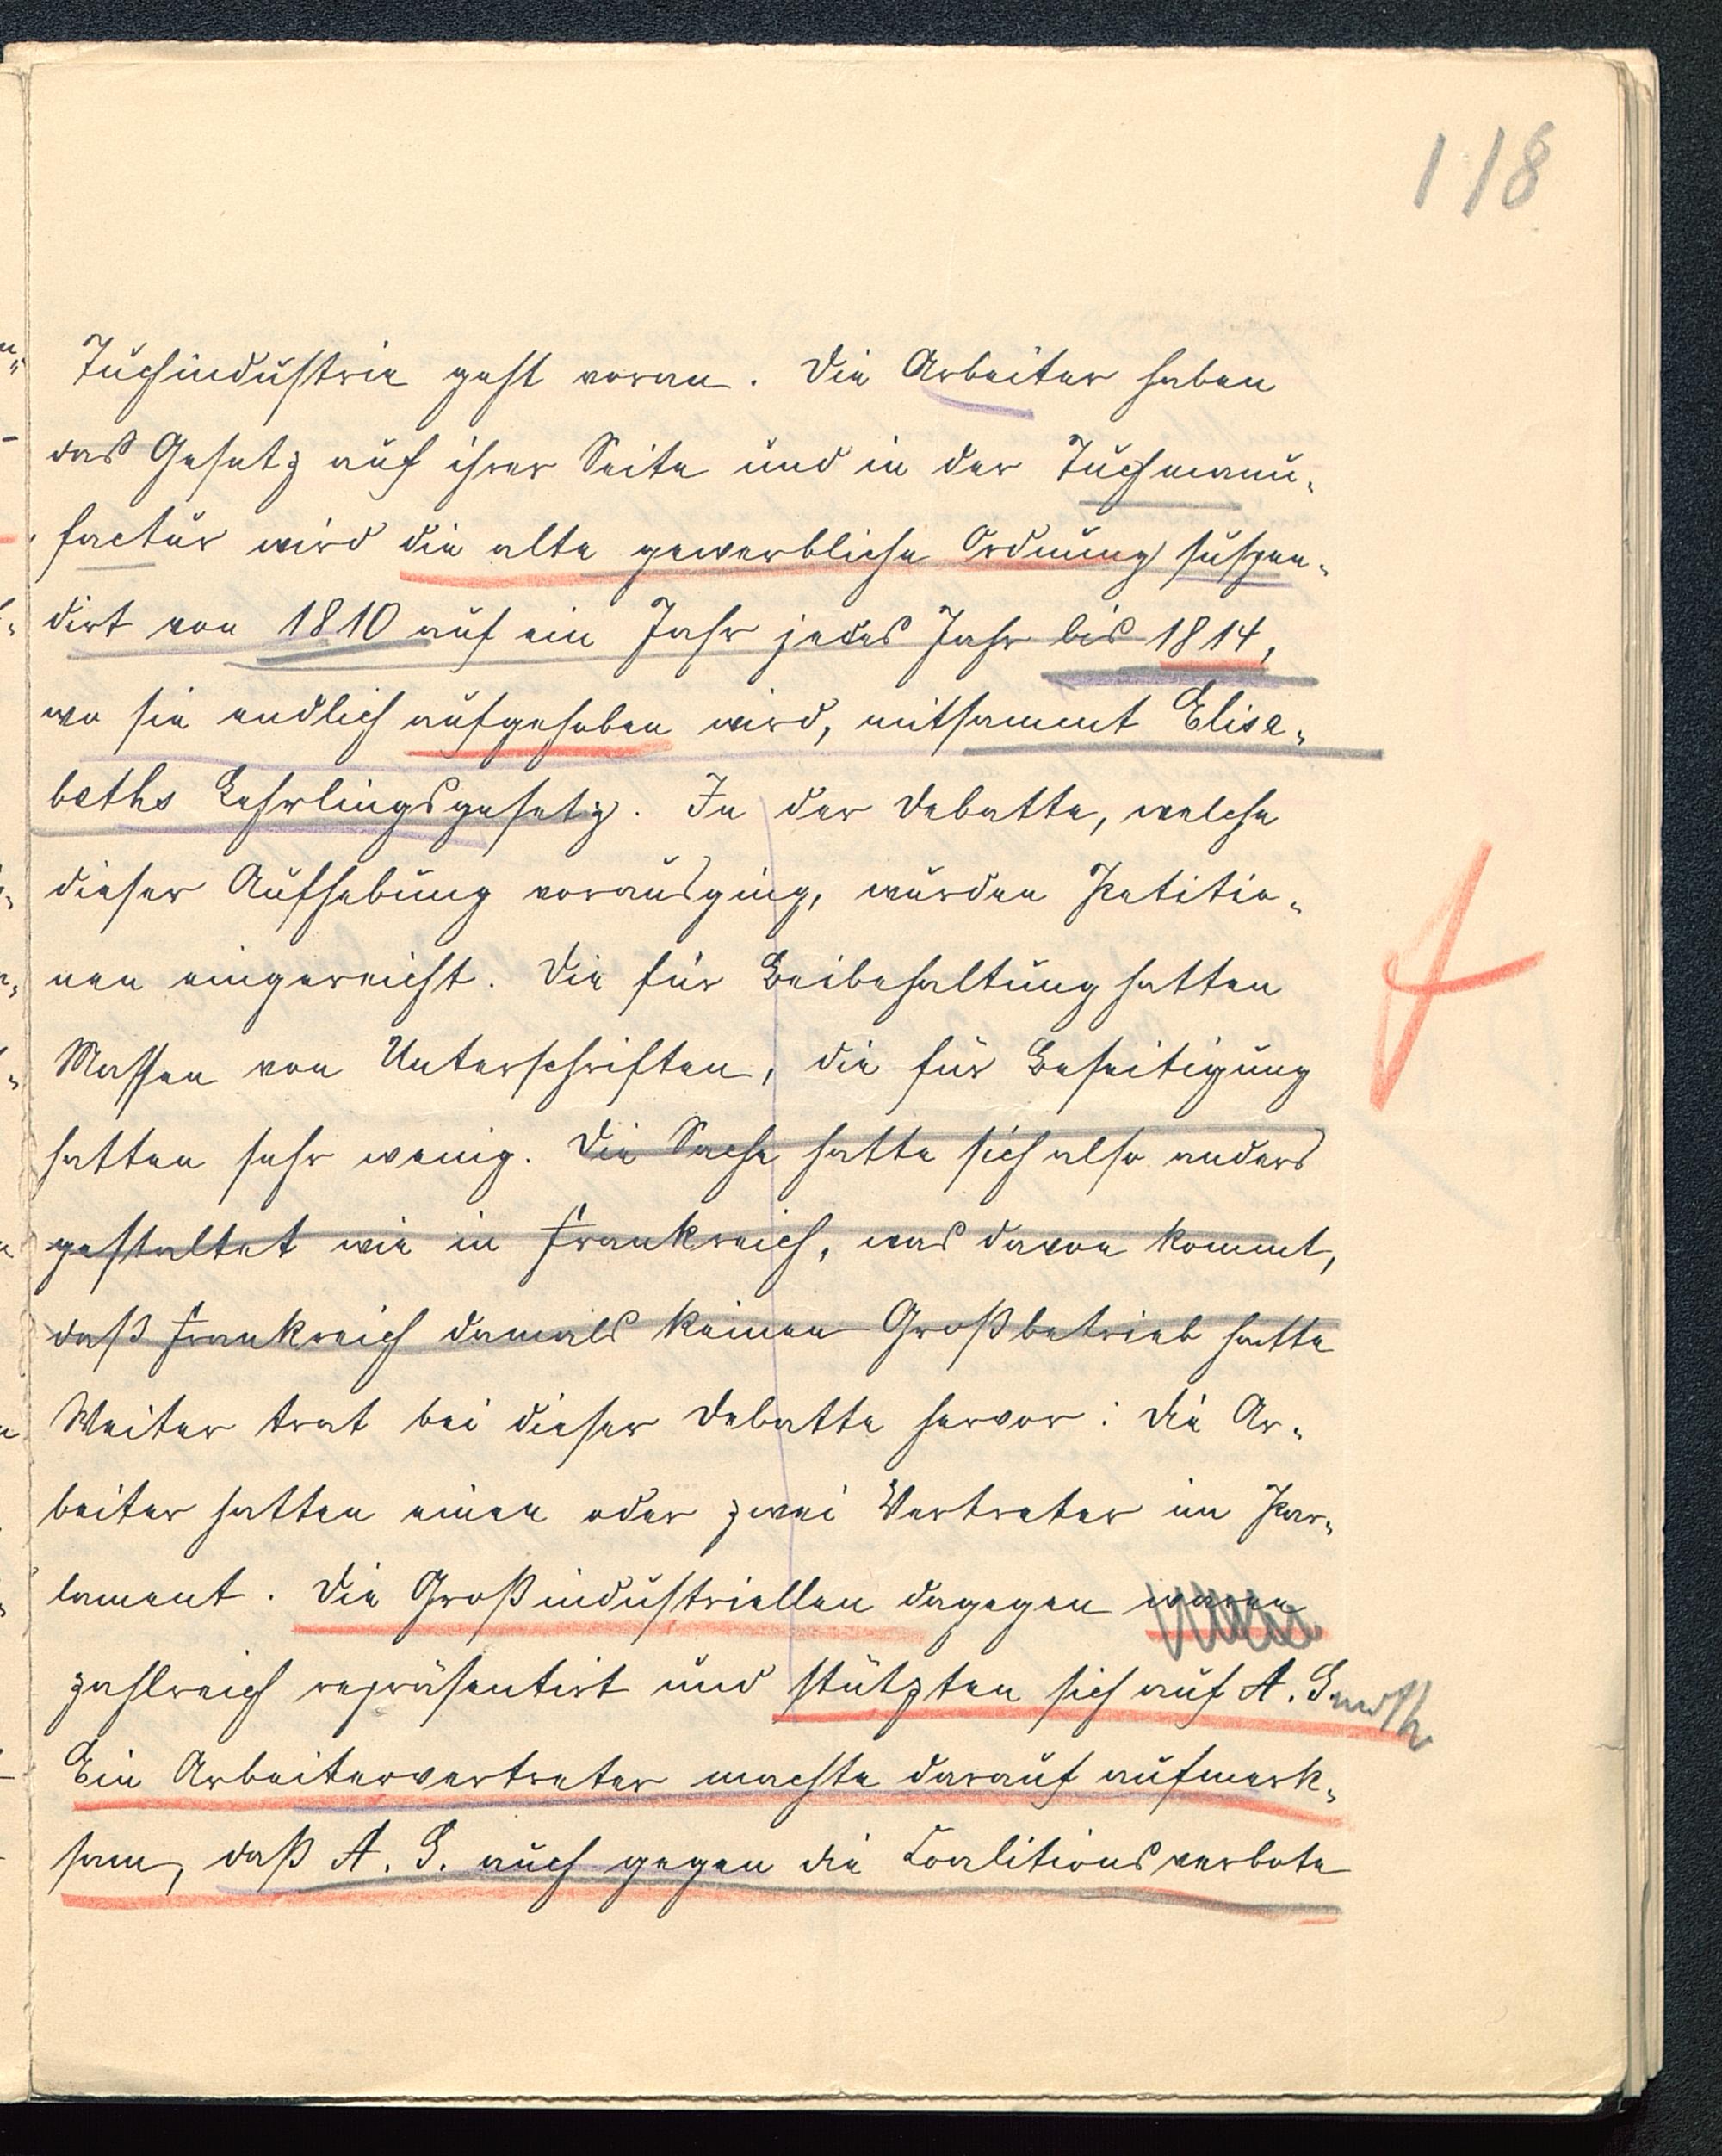 118
Tuchindustrie geht voran. Die Arbeiter haben
das Gesetz auf ihrer Seite und in der Tuchmanu-
factur wird die alte gewerbliche Ordnung suspen-
dirt von 1810 auf ein Jahr jedes Jahr bis 1814,
wo sie endlich aufgehoben wird, mitsammt Elisa-
beths Lehrlingsgesetz. In der Debatte, welche
dieser Aufhebung vorausging, wurden Petitio-
nen eingereicht. Die für Beibehaltung hatten
Massen von Unterschriften, die für Beseitigung
hatten sehr wenig. Die Sache hatte sich also anders
gestaltet wie in Frankreich, was davon kommt,
daß Frankreich damals keinen Großbetrieb hatte
Weiter trat bei dieser Debatte hervor: Die Ar-
beiter hatten einen oder zwei Vertreter im Par-
lament. Die Großindustriellen dagegen waren
zahlreich repräsentirt und stützten sich auf A. Smith
Ein Arbeitervertreter machte darauf aufmerk-
sam, daß A. S. auch gegen die Coalitionsverbote